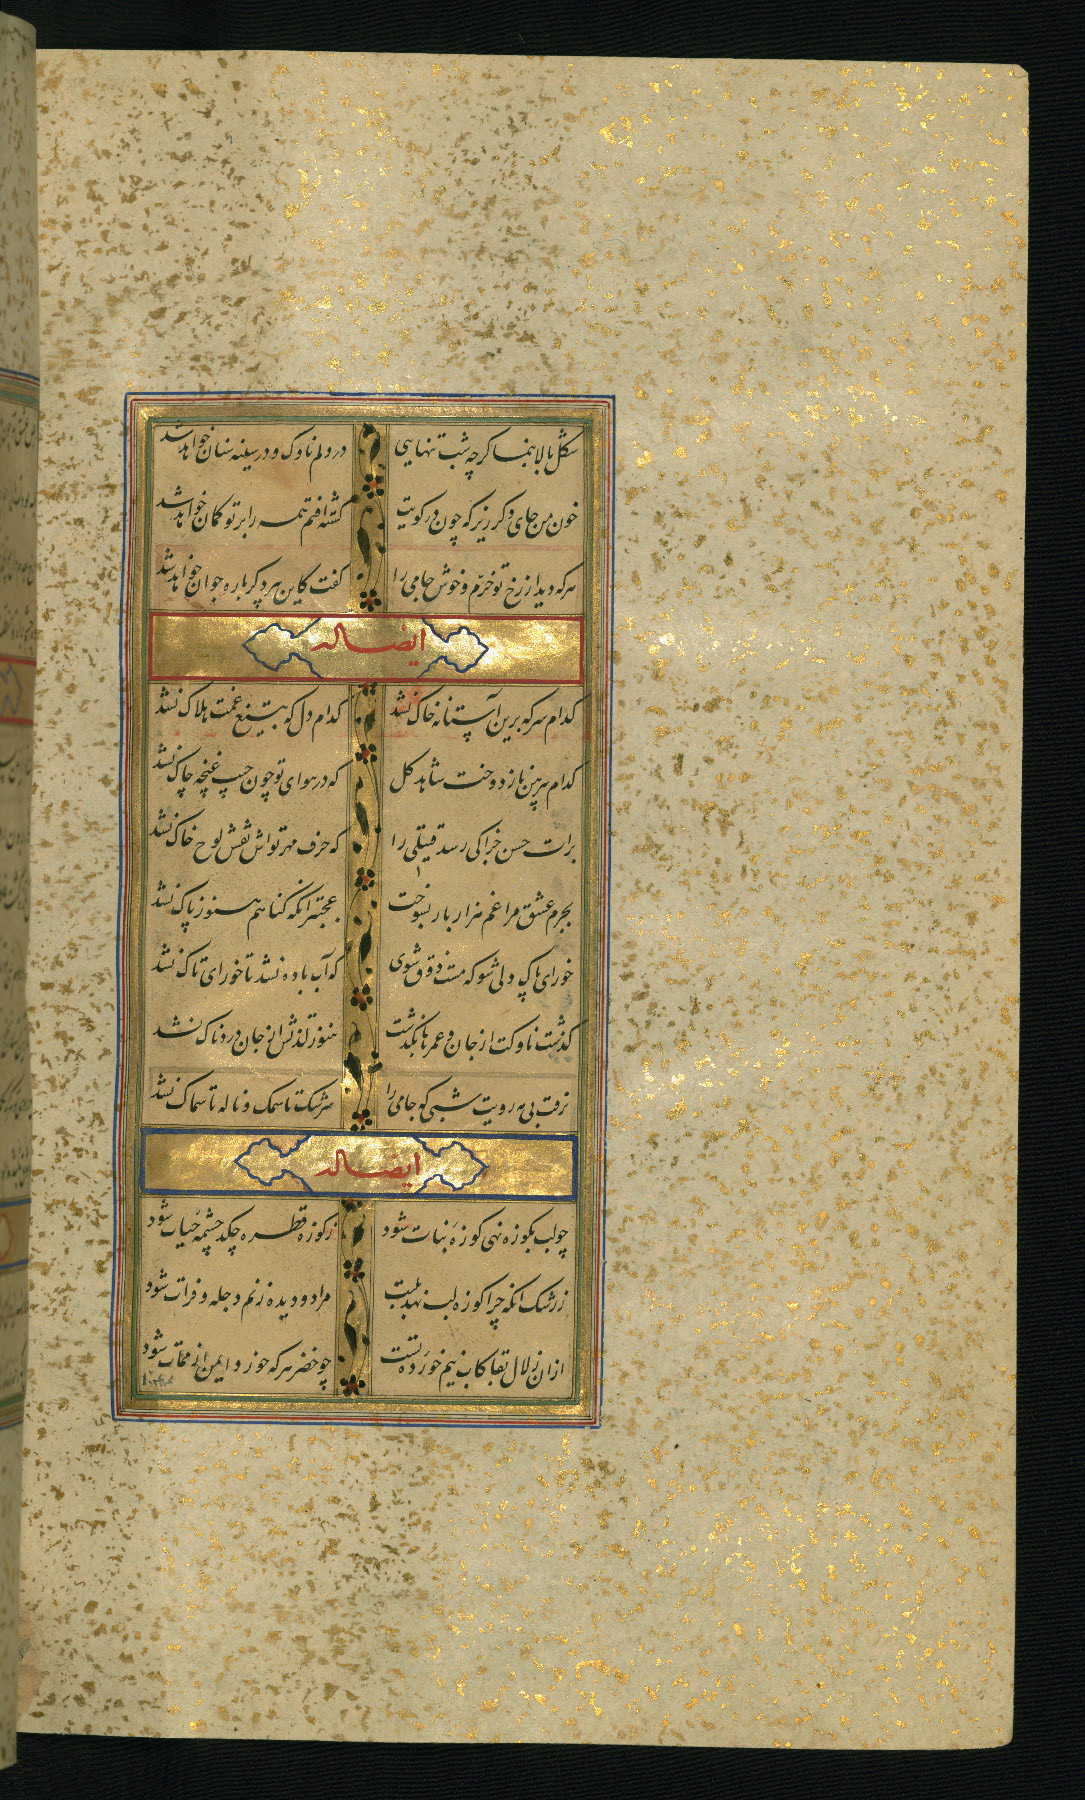 شکل بالا بنما گرچه شب تنهایی در دلم ناوک و در سینه سنان خواهد شد
خون من جای دگر ریز که چون در کویت کشته افتم همه را بر تو گمان خواهد شد
هرکه دید از رخ تو خرم و خوش جامی را گفت کاین پیر دگرباره جوان خواهد شد
ایضا له
کدام سر که برین آستانه خاک نشد کدام دل که بتیغ غمت هلاک نشد
کدام پیرهن ناز دوخت شاهد گل که در هوای تو چون جیب غنچه چاک نشد
برات حسن خرا کی رسد قتیلی را که حرف مهر تواش نقش لوح خاک نشد
بجرم عشق مرا غم هزار بار بسوخت عجبتر آنکه گناهم هنوز پاک نشد
خورای پاک دلی شو که مست ذوق شوی که آب باده نشد تا خورای تاک نشد
گذشت ناوکت از جان و عمرها بگذشت هنوز لذتش از جان دردناک نشد
نرفت بی مه رویت شبی که جامی را سرشک تا سمک و ناله تا سماک نشد
ایضا له
چو لب بکوزه نهی کوزهٔ نبات شود ز کوزه قطره چکد چشمهٔ حیات شود
ز رشک آنکه چرا کوزه لب نهد بلبت مرا دو دیده ز نم دجله و فرات شود
ازان زلال بقا کاب نیم خوردهٔ تست چو خضر هرکه خورد ایمن از ممات شود